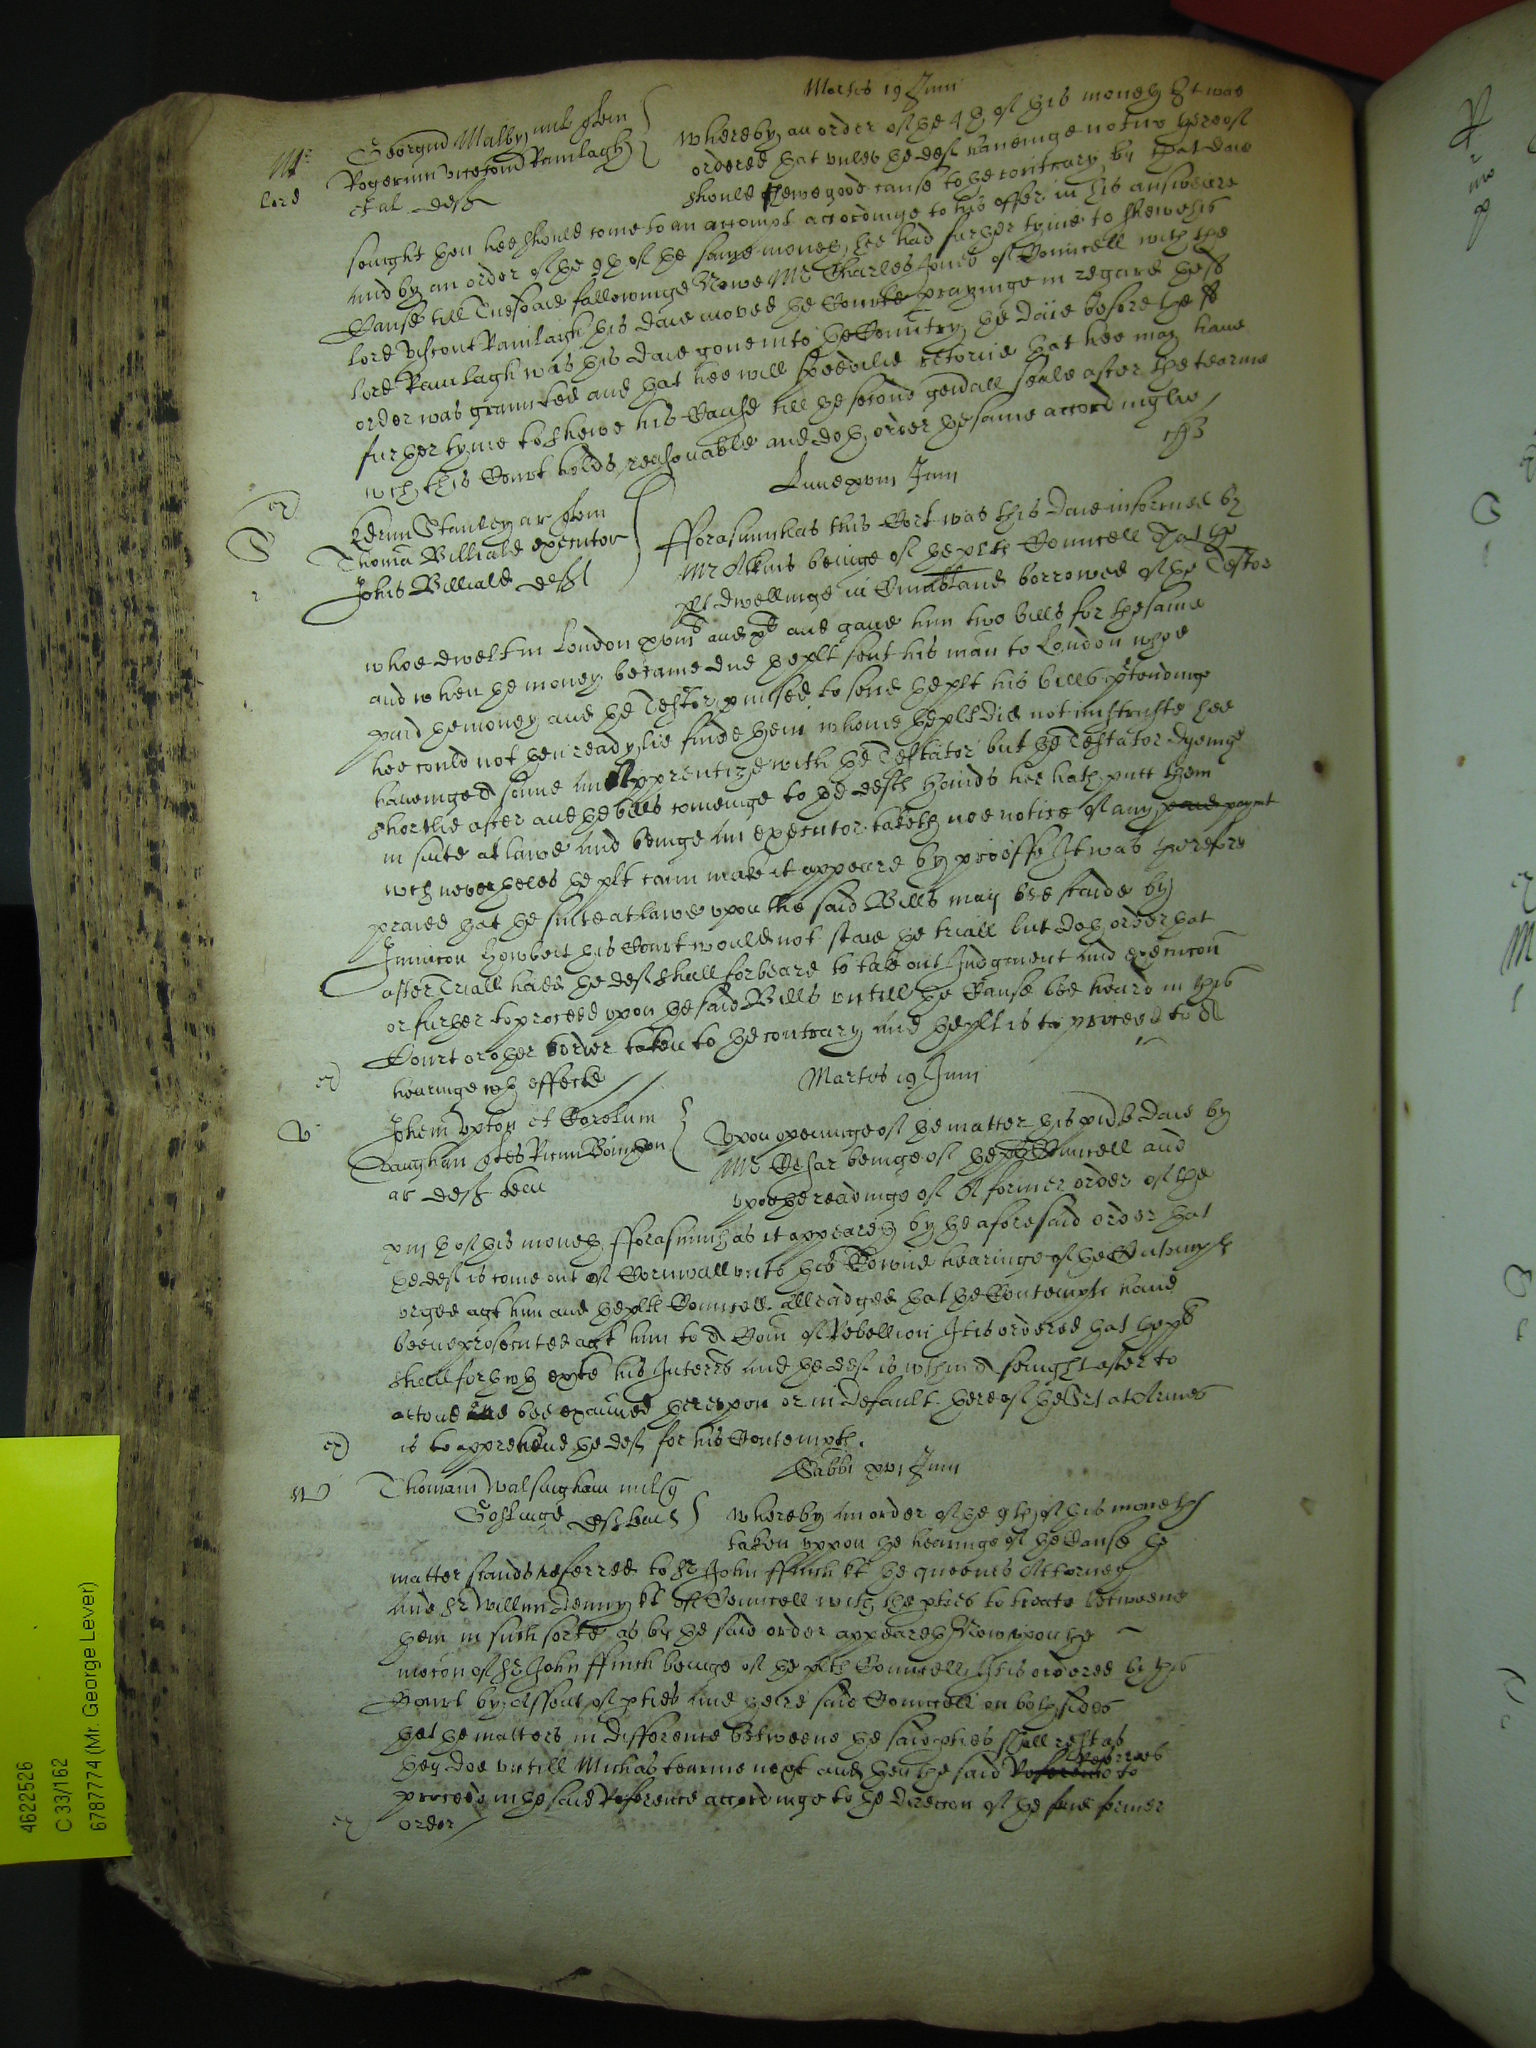 Martis 19 Junii
Mr
lord
Georgiu Malby mil quer
Rogerum vicecom Ranelagh
et al deft
whereby an order of the 4th of this moneth It was
ordered that unles the deft haveinge notice thereof
should shewe good cause to the contrary by that daie
senight then hee should come to an accompt accordinge to his offer in his answeare
And by an order of the 9th of the same moneth hee had further tyme to shewe his
Cause till Tuesdaie followinge Nowe Mr Charles Jones of Councell with the
lord Viscont Ranelagh this daie moved the Courte prayinge in regard the sd
lord Ranelagh was this daie gone into the Countrey the daie before the sd
order was graunted and that hee will speedilie retorne that hee may have
further tyme to shewe his Cause till the second gen'all seale after the tearme
wch this Court holds reasonable and doth order the same accordinglie
Lune xviii Junii
S
Edrum Stanley ar quer
Thoma Billiald executor
Johis Billiald deft
fforasmuch as this Cort was this daie informed by
Mr Atkins beinge of the plts Councell That the
plt dwellinge in Cumb'land borrowed of the Testor
whoe dwelt in London and gave him two bills for the same
and when the money became due the plt sent his man to London whoe
paid the money and the Testor p'mised to send the plt his bills p'tendinge
hee could not then readylie finde them whome the plt did not mistruste hee
haveinge a sonne an Apprentize with the Testator but the Testator dyeinge
shortlie after and the bills comeinge to the defts hands hee hath putt them
in suite at lawe And beinge an executor taketh noe notice of any paymt
wch nevertheles the plt cann make it appeare by prooffe It was therefore
praied that the suite at lawe upon the said Bills may bee staide by
Iniuncon Howbeit this Court would not staie the triall but doth order that
after Triall had the deft shall forbeare to take out Judgment And execucon
or further to proceed upon the said Bills untill the Cause bee heard in this
Court or other order taken to the contrary And the plt is to proceed to a
hearinge wth effecte
Martis 19 Junii
V
Johem Upton et Carolum
Vaughan quer
ar deft
Upon openinge of the matter this p'nte daie by
Mr Cesar beinge of the plts Councell and
upon the readinge of A former order of the
xviijth of this moneth fforasmuch as it appeareth by the aforesaid order that
the deft is come out of Cornwall unto this Towne hearinge of the Contempts
urged agt him and the plts Councell alleadged that the Contempts have
beene prosecuted agt him to a Com of Rebellion It is ordered that the plt
shall forthwth exhte his Interrs And the deft is within a senight after to
attend And bee examined thereupon or in default thereof the Srt at Armes
is to apprehend the deft for his Contempts.
Sabbi xvi Junii
W
Thomam Walsingham mil q
Goslinge deft
whereby An order of the 9th of this moneth
taken uppon the hearinge of the Cause the
matter stands referred to Sr John ffinch kt the queenes Attorney
And Sr Willm Denny kt of Councell with the pties to treate betweene
them in such sorte as by the said order appeareth Now upon the
mocon of Sr John ffinch beinge of the plts Councell It is ordered by this
Court by Assent of pties And theire said Councell on both sides
that the matters in difference betweene the said pties shall rest as
they doe untill Michas tearme next and then the said Referres to
proceed in the said Reference accordinge to the direccon of the said former
order
4622526
C 33/162
6787774 (Mr. George Lever)